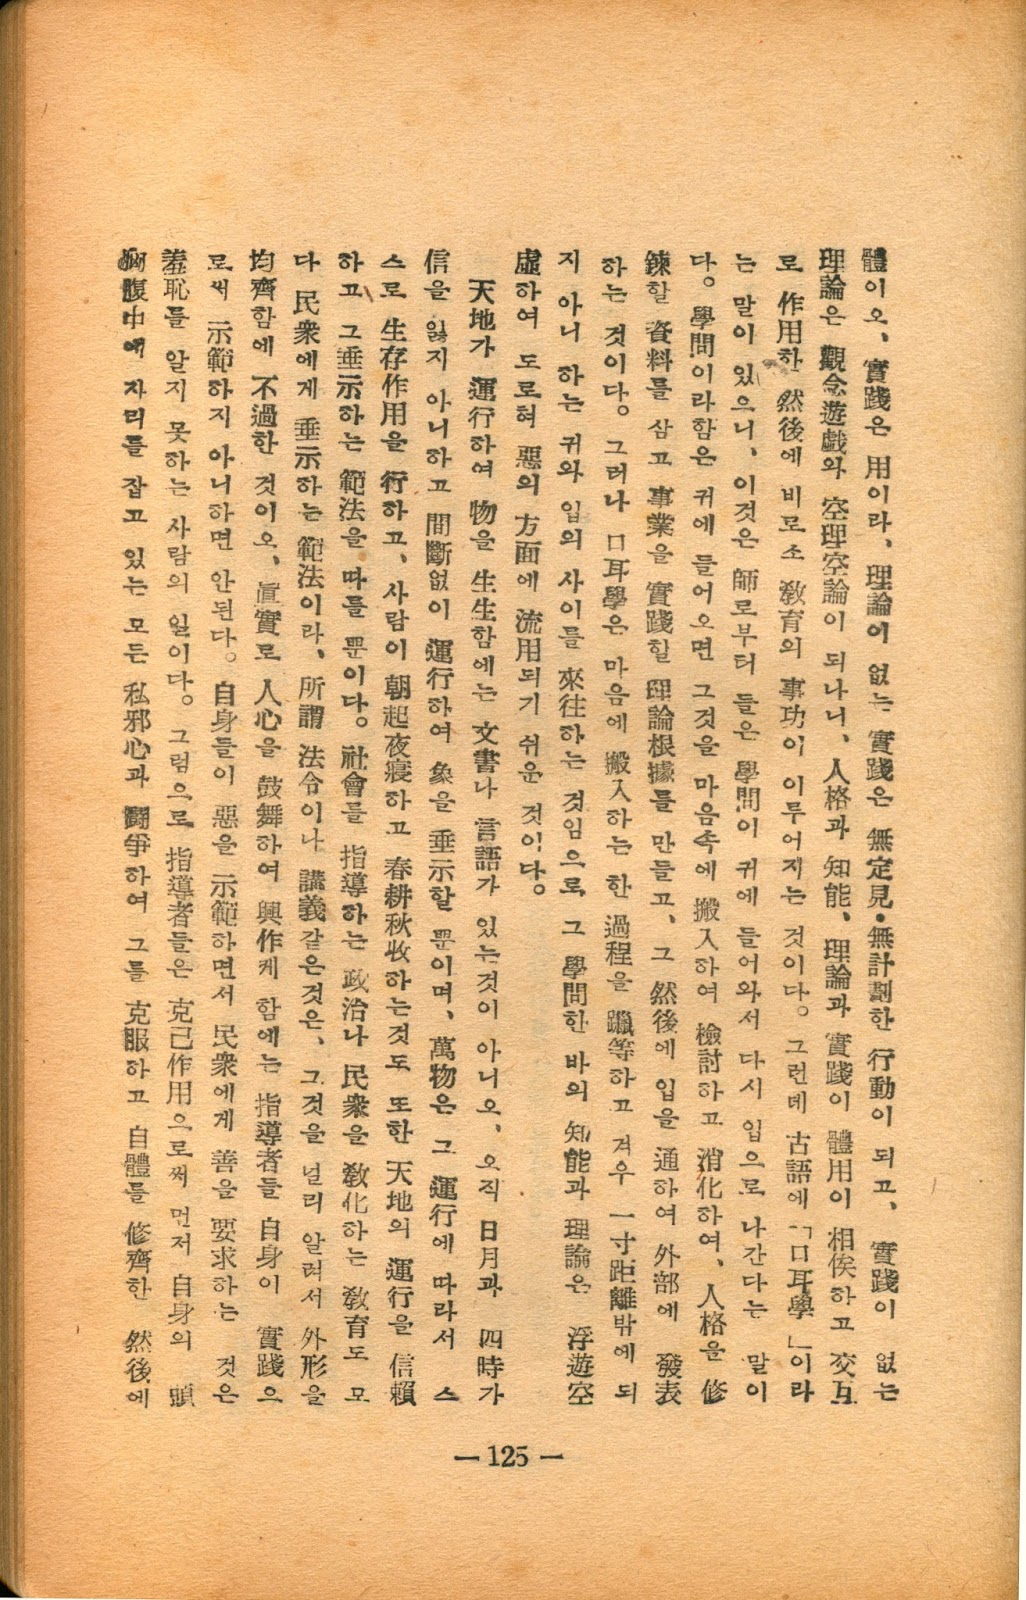 體이오、實踐은 用이라、理論이 없는 實踐은 無定見·無計劃한 行動이 되고、 實踐이 없는
理論은 觀念遊戱와 空理空論이 되나니、人格과 知能、理論과 實踐이 體用이 相俟하고 交互
로 作用한 然後에 비로소 敎育의 事功이 이루어지는 것이다。그런데 古語에「口耳學」이라
는 말이 있으니、이것은 師로부터 들은 學問이 귀에 들어와서 다시 입으로 나간다는 말이
다。學問이라함은 귀에 들어오면 그것을 마음속에 搬入하여 檢討하고 消化하여、人格을 修
鍊할 資料를 삼고 事業을 實踐힐 理論根據를 만들고、그 然後에 입을 通하여 外部에 發表
하는 것이다。그러나 口耳學은 마음에 搬入하는 한 過程을 躐等하고 겨우 一寸距離밖에 되
지 아니 하는 귀와 입의 사이를 來往하는 것임으로 그 學問한 바의 知能과 理論은 浮遊空
虛하여 도로혀 惡의 方面에 流用되기 쉬운 것이다。
天地가 運行하여 物을 生生함에는 文書나 言語가 있는것이 아니오、오직 日月과 四時가
信을 잃지 아니하고 間斷없이 運行하여 象을 垂示할 뿐이며、萬物은 그 運行에 따라서 스
스로 生存作用을 行하고、사람이 朝起夜寢하고 春耕秋收하는것도 또한 天地의 運行을 信賴
하고 그 垂示하는 範法을 따를 뿐이다。社會를 指導하는 政治나 民衆을 敎化하는 敎育도 모
다 民衆에게 垂示하는 範法이라、所謂 法令이나 講義같은것은、그것을 널리 알려서 外形을
均齊함에 不過한 것이오、眞實로 人心을 鼓舞하여 興作케 함에는 指導者들 自身이 實踐으
로써 示範하지 아니하면 안된다。自身들이 惡을 示範하면서 民衆에게 善을 要求하는 것은
羞恥를 알지 못하는 사람의 일이다。그럼으로 指導者들은 克己作用으로써 먼저 自身의 頭
胸腹中에 자리를 잡고 있는 모든 私邪心과 鬪爭하여 그를 克服하고 自體를 修齊한 然後에
— 125 —